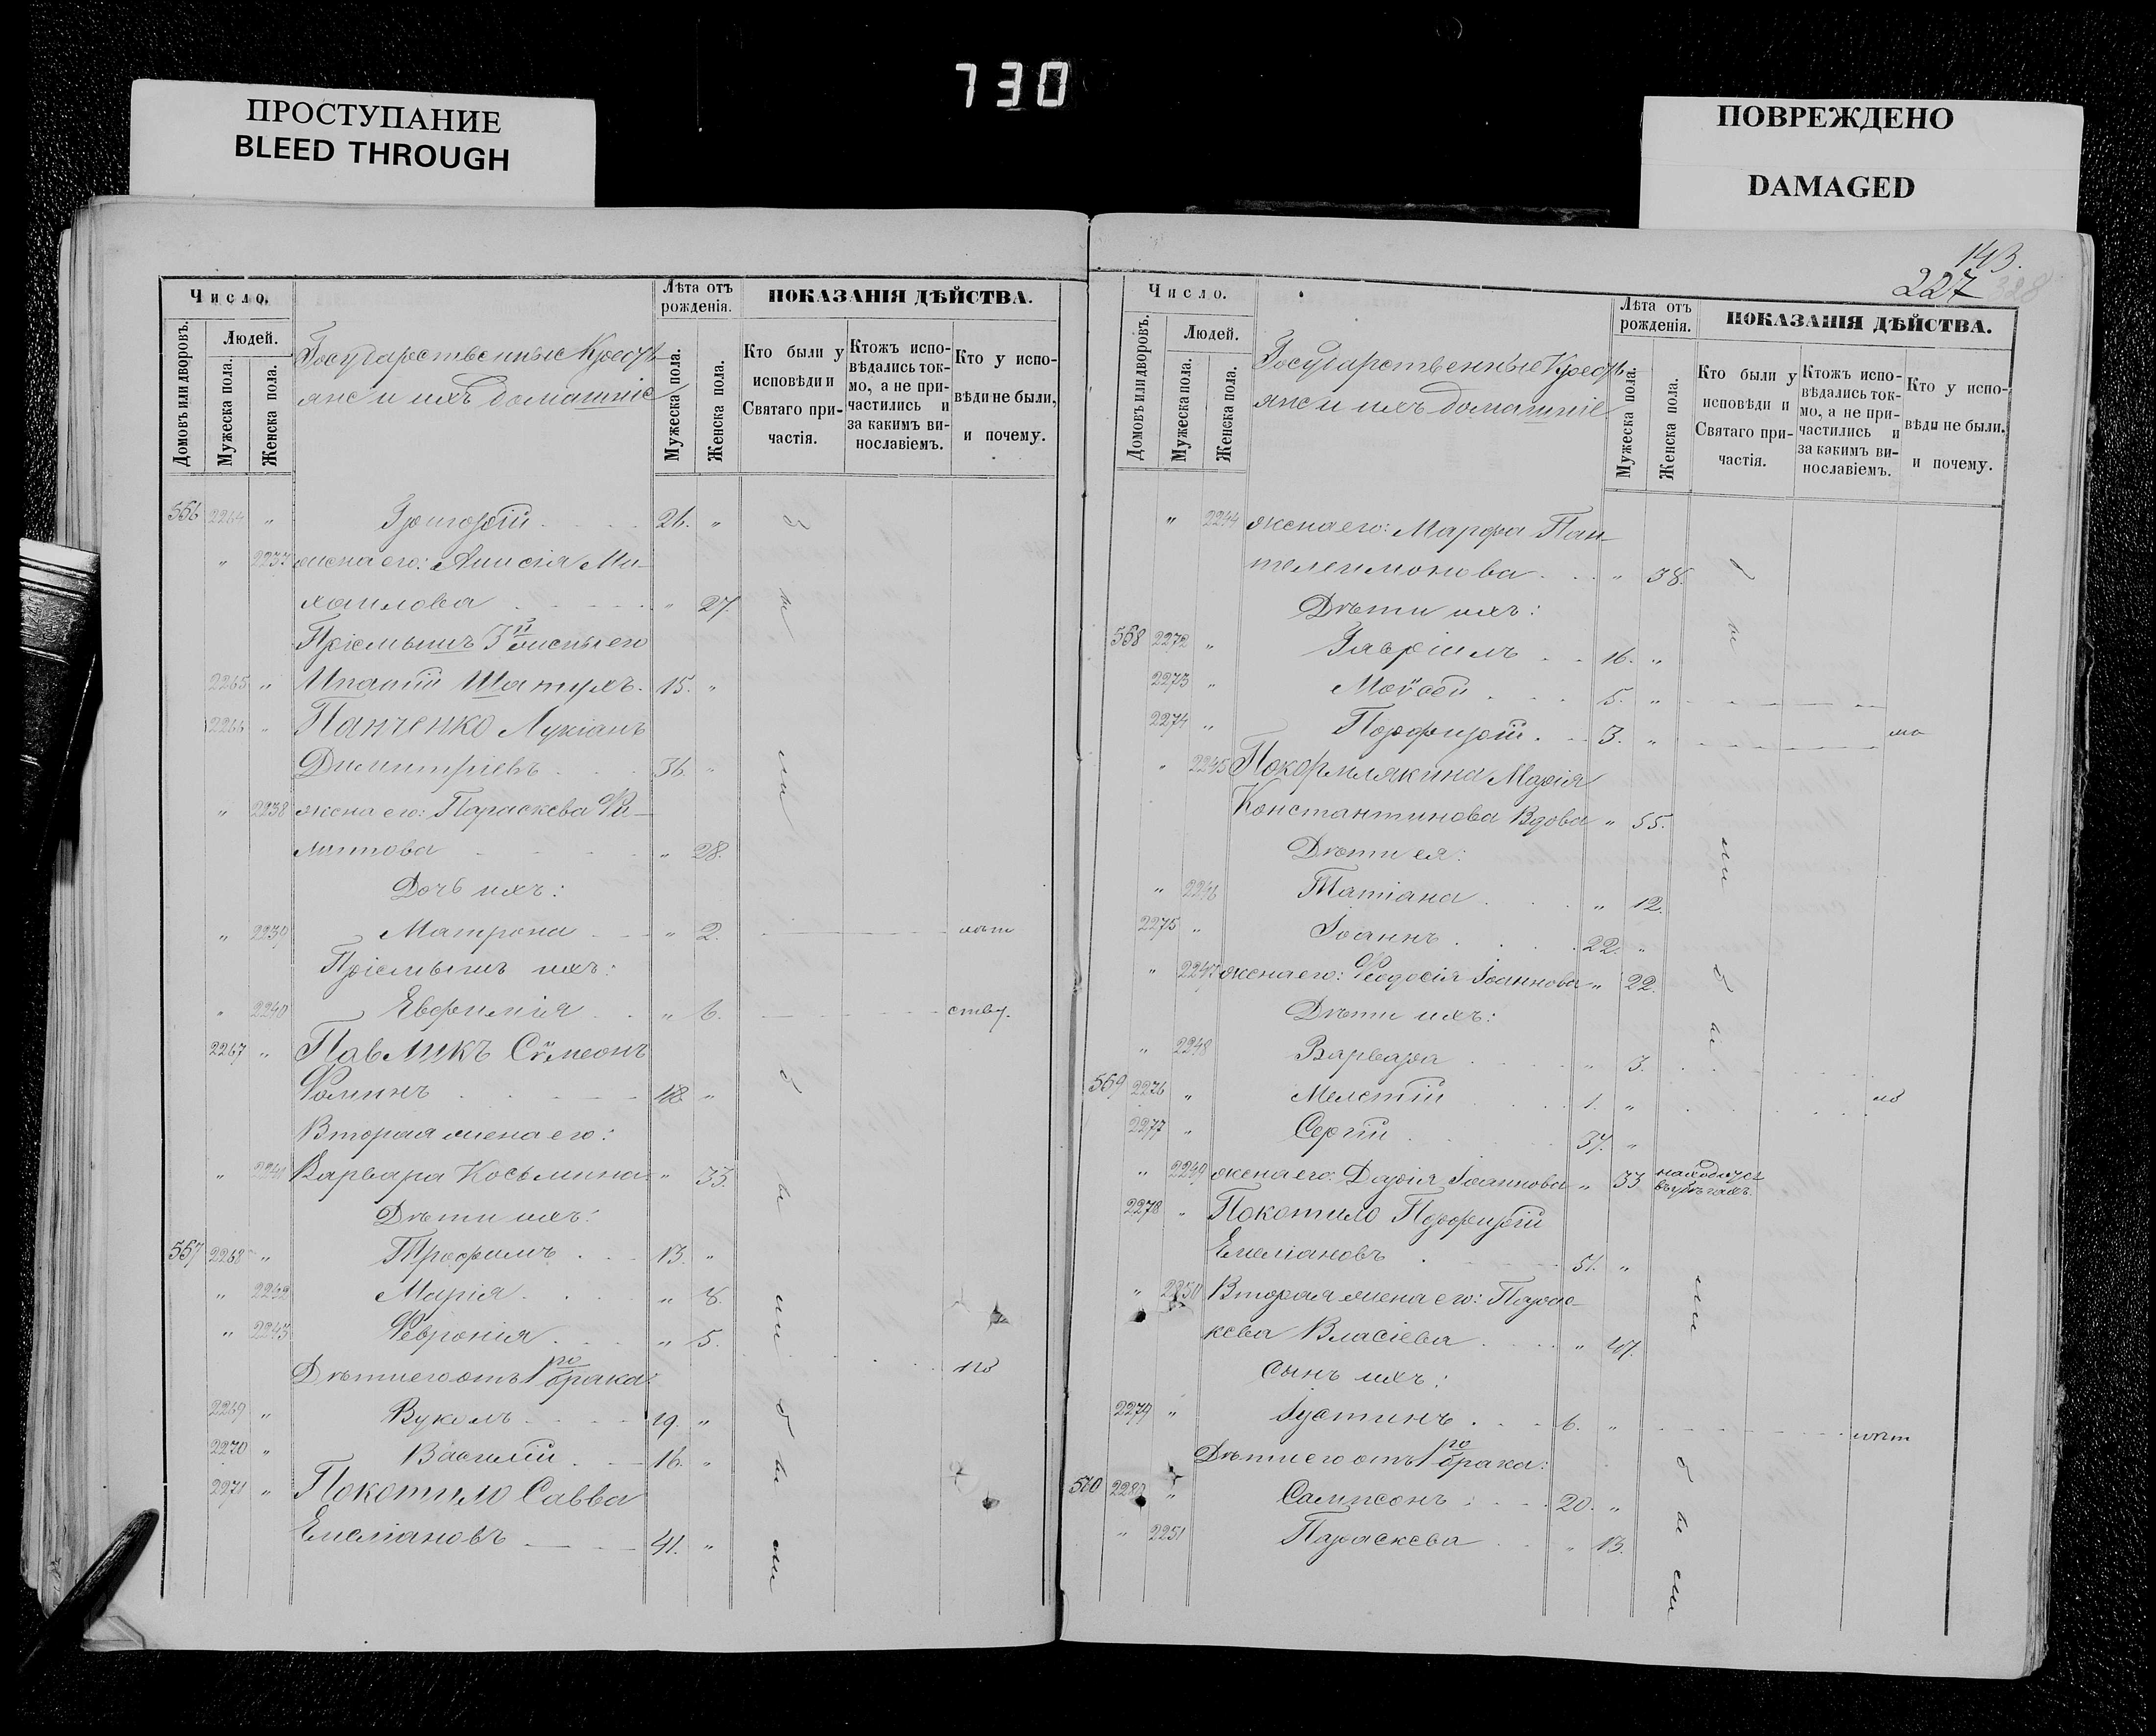 730
ПРОСТУПАНИЕ
BLEED THROUGH
ПОВРЕЖДЕНО
DAMAGED
Число.
Домовъ или дворовъ.
Людей.
Мужеска пола.
Женска пола.
Государственные Кресть-
яне и ихъ домашніе
Лѣта отъ рожденія.
Мужеска пола.
Женска пола.
ПОКАЗАНІЯ ДѢЙСТВА.
Кто были у исповѣди и Святаго при-частія.
Ктожъ испо-вѣдались ток-мо, а не при-частились и за какимъ ви-нославіемъ.
Кто у испо-вѣди не были, и почему.
566 2264 " Григорій 26. "
" 2237 жена его: Анисія Ми-
хаилова " 27.
Пріемышъ 3й жены его
2265 " Ипатій Шатухъ. 15. "
2266 " Панченко Лукіанъ
Димитріевъ 36. "
" 2238 жена его: Параскева Фи-
липпова " 28.
Дочь ихъ:
" 2239 Матрона " 2.
Пріемышъ ихъ:
" 2240 Евфимія " 6.
2267 " Павликъ Сѵмеонъ
Ѳоминъ 48 "
Вторая жена его:
" 2241 Варвара Косьмина " 33.
Дѣти ихъ:
567 2268 " Трофимъ 13. "
" 2242 Марія " 8.
" 2243 Февронія " 5.
Дѣти его отъ 1го брака:
2269 " Вуколъ 19. "
2270 " Василій 16. "
2271 " Покотило Савва
Емеліановъ 41. "
были
были
были
143.
227 228
Число.
Домовъ или дворовъ.
Людей.
Мужеска пола.
Женска пола.
Государственные Кресть-
яне и ихъ домашніе
Лѣта отъ рожденія.
Мужеска пола.
Женска пола.
ПОКАЗАНІЯ ДѢЙСТВА.
Кто были у исповѣди и Святаго при-частія.
Ктожъ испо-вѣдались ток-мо, а не при-частились и за какимъ ви-нославіемъ.
Кто у испо-вѣди не были, и почему.
" 2244 жена его: Марфа Пан-
телеимонова " 38.
Дѣти ихъ:
568 2272 " Гавріилъ 16. "
2273 " Моѵсей 5. "
2274 " Порфирій 3. " ма
" 2245 Покормлякина Марія
Константинова Вдова " 55.
Дѣти ея:
" 2246 Татіана " 12.
2275 " Іоаннъ 22. "
" 2247 жена его: Ѳеодосія Іоаннова " 22.
Дѣти ихъ:
" 2248 Варвара " 3.
569 2276 " Мелетій 1. " ло
2277 " Сергій 37. "
" 2249 жена его: Дарія Іоаннова " 33
2278 " Покотило Порфирій
Емеліановъ 51. "
" 2250 Вторая жена его: Парас-
кева Власіева " 47.
Сынъ ихъ:
2279 " Іустинъ 6. "
Дѣти его отъ 1го брака:
570 2280 " Сампсонъ 20. "
" 2251 Параскева " 13.
были
были
были